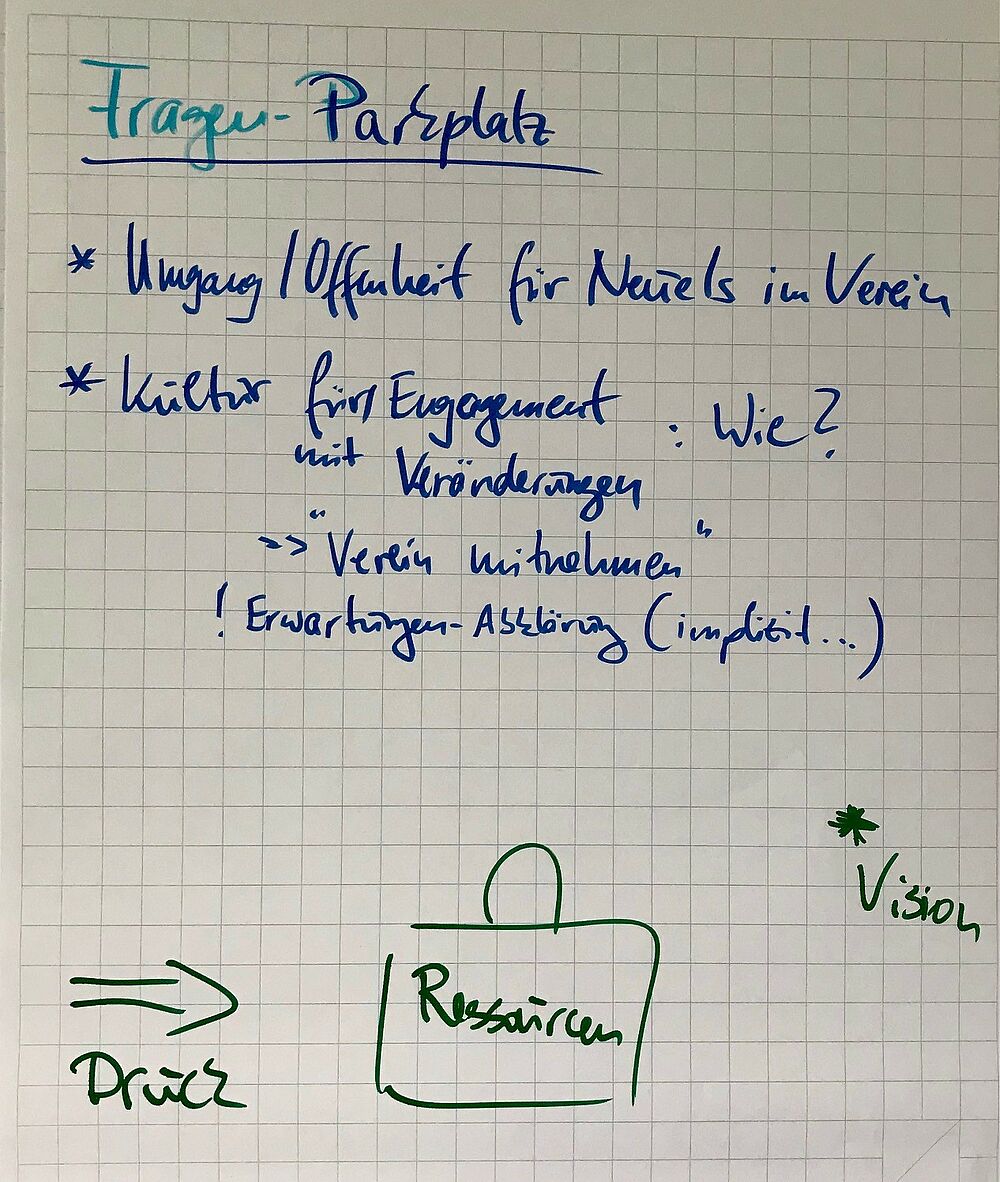 Fragen-Parkplatz
* Umgang / Offenheit für Neues im Verein
* Kultur fürs Engagement : Wie?
mit Veränderungen
>> "Verein mitnehmen"
! Erwartungen-Abklärung (implizit...)
* Vision
Ressourcen
Druck